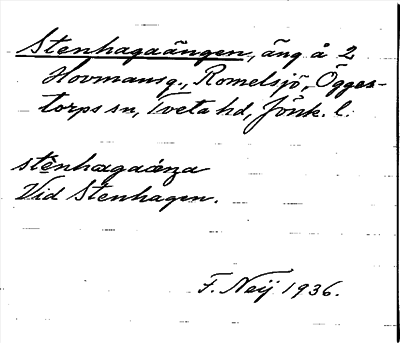 Stenhagaängen, äng å 2
Hovmansg., Romelsjö, Ögges-
torps sn, Tveta hd, Jönk. l.
stènhagaäŋa
Vid Stenhagen.
F. Neij 1936.